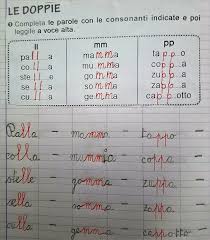 LE DOPPIE
Completa le parole con le consonanti indicate e poi
leggile a voce alta.
ll mm pp
palla mamma tappo
colla mummia coppa
ste gomma zuppa
sella somma
culla gemma cappotto
Palla – mamma – tappo
colla – mummia – coppa
stelle – gomma – zuppa
sella – somma –
culla – gemma –